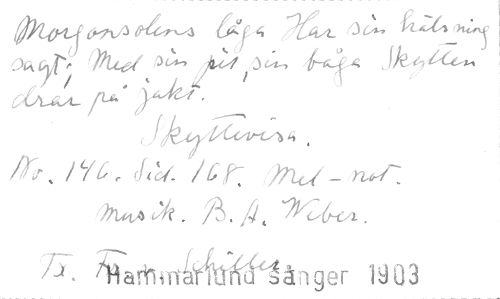 Morgonsolens låga Har sin hälsning
sagt; Med sin pil, sin båga Skytten
drar på jakt.
Skyttevisa.
No. 146. Sid. 168. Mel-not.
Musik. B. A. Weber.
Tx. Fr. v. Schiller.
Hammarlund sånger 1903